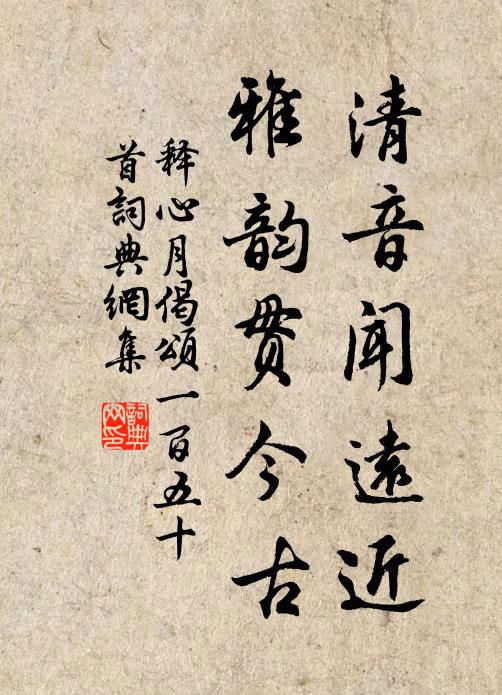 清音闻遠近
雅韵贯今古
释心月偈頌一百五十
首詞典網集
詞典网印